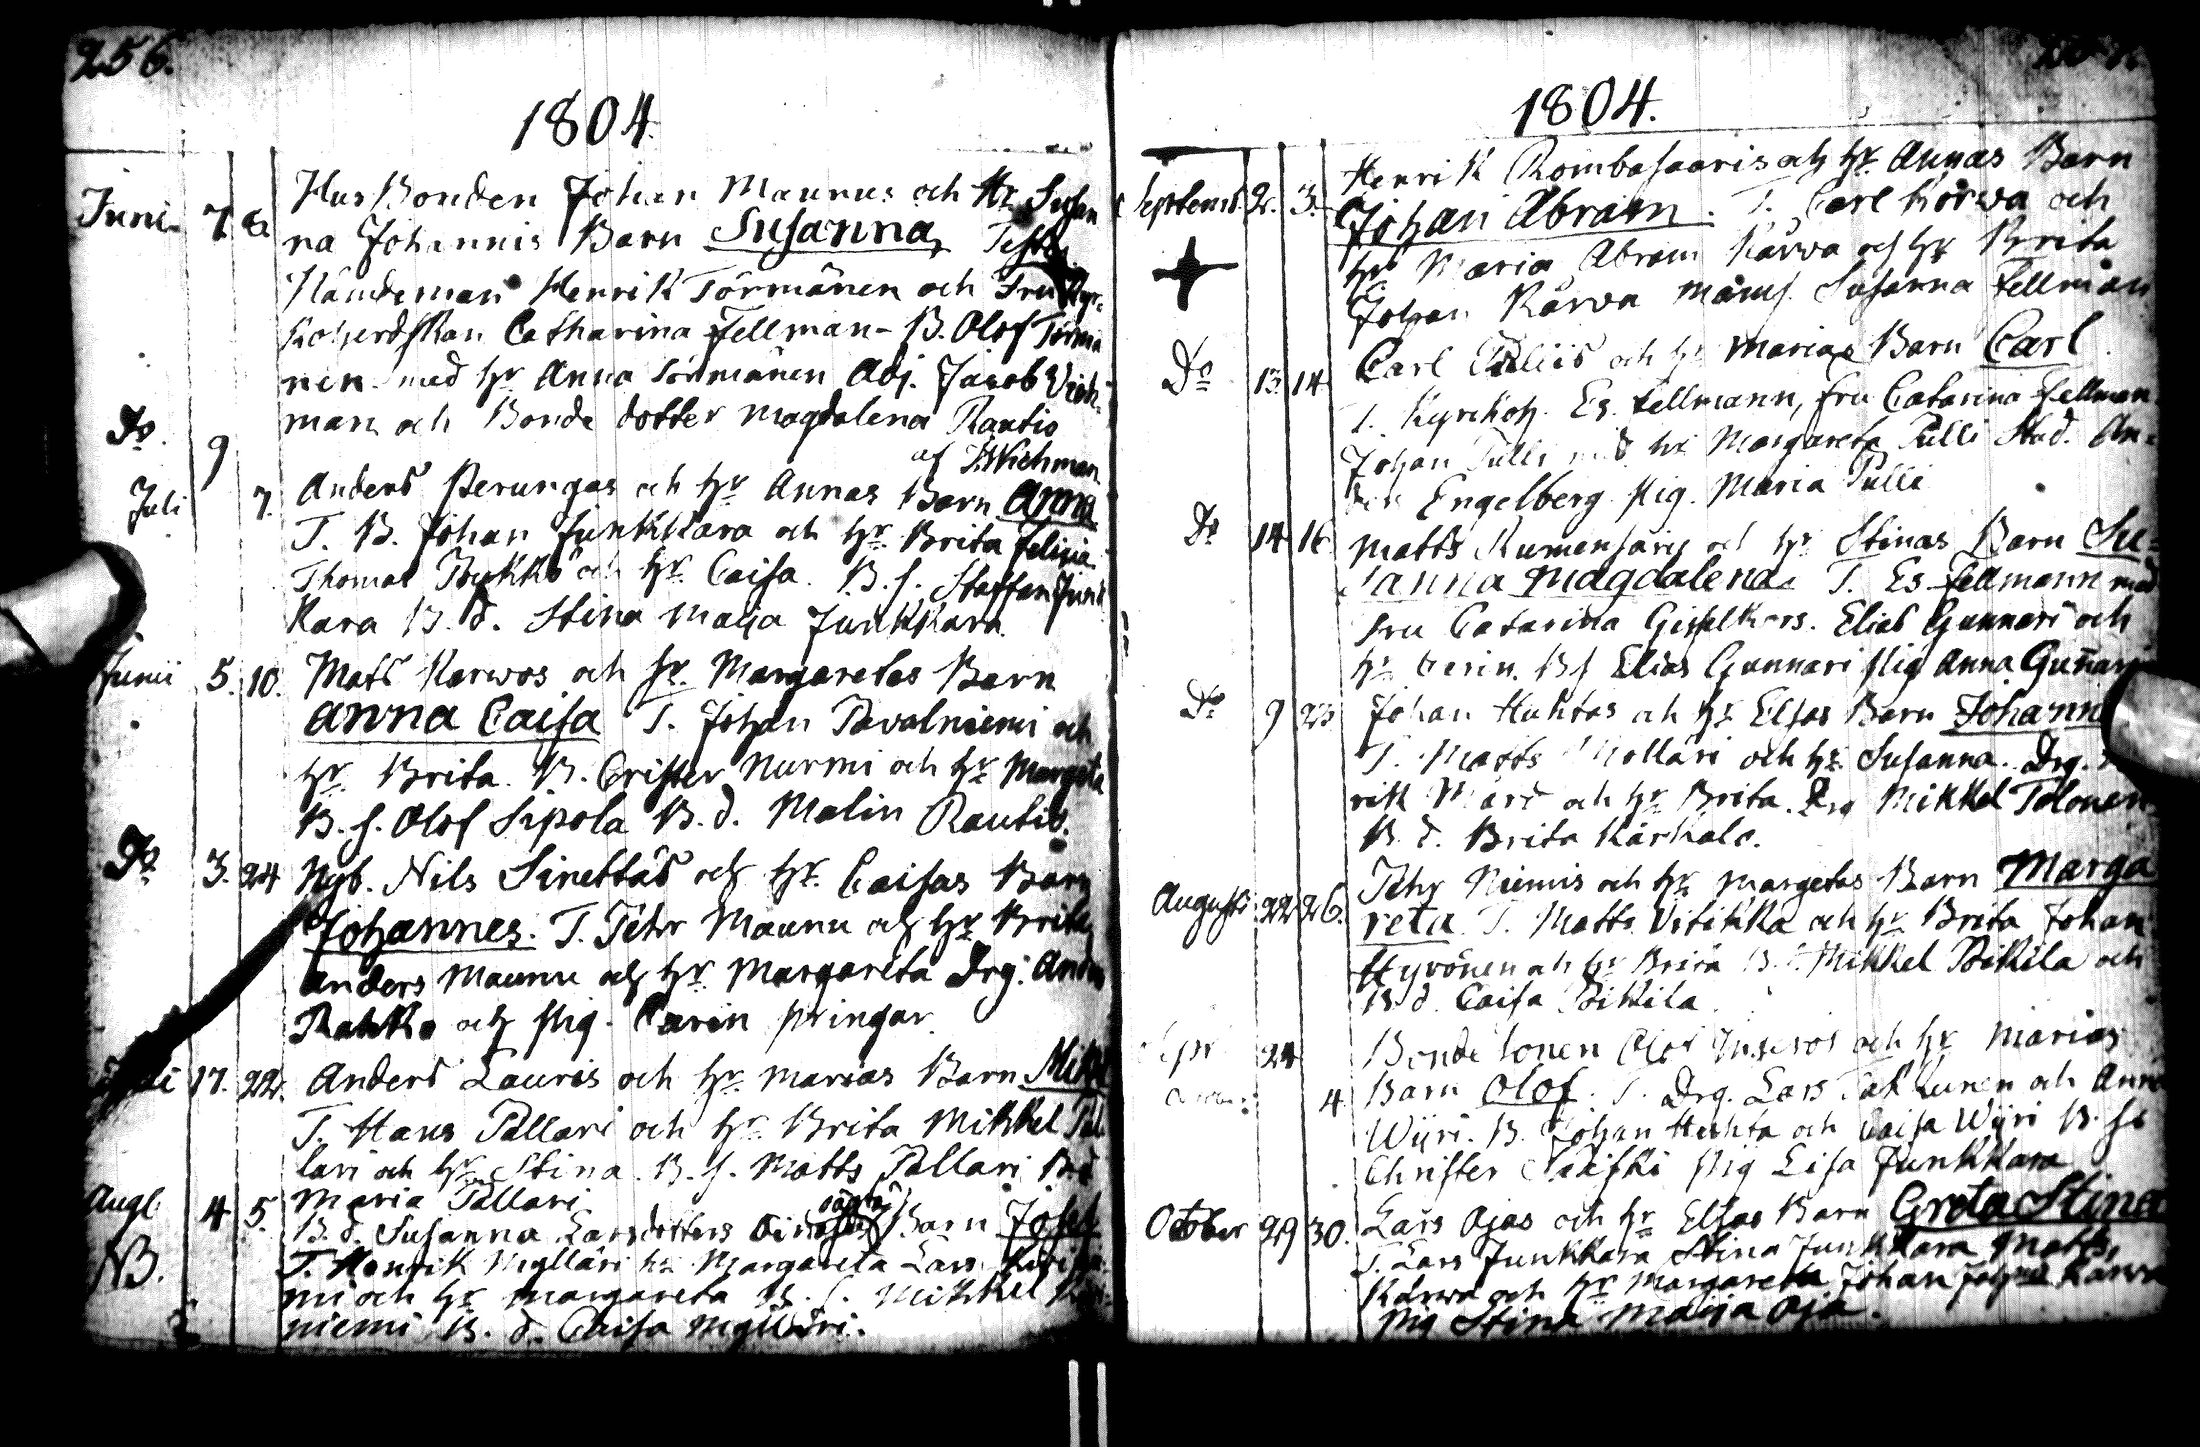 256.
1804.
Juni 7 8 HusBonden Johan Maunus och Hr Susan
na Johannis Barn Susanna, Test.
Nämdeman Henrik Törmänen och Fru Kyr-
koherdskan Catharina Fellman - B. Olof Törmä
nen med hr Anna Törmänen Adj. Jacob Wich-
man och Bonde dotter Magdalena Rautio
Do. 9 af J. Wichman
Juli 7. Anders Perungas och hr Annas Barn Anna
T. B. Johan Junkkara och hr Brita
Thomas och hr Caisa. B. s. Staffan Junk
kara B. d. Stina Maija Junkkara
Junii 5. 10. Mats Karwos och hr. Margaretas Barn
Anna Caisa T. Johan Pavalniemi och
hr Brita. B. Crister Nurmi och hr Margeta
B. s. Olof Sipola B. d. Malin Rautio.
Do 3. 24 Nyb. Nils Sinettäs och hr. Caisas Barn
Johannes. T. Pehr Maunu och hr Brita
Anders Maunu och hr Margareta Drg. Anders
Rahko och Pig. Carin Pringar.
17. 22. Anders Lauris och hr Marias Barn Mikel
T. Hans Pallari och hr Brita Mikkel Pal
lari och hr Stina. B. s. Matts Pallari B. d
Maria Pallari
Augl. 4 5. B. d. Susanna Larsdotters oägta Barn Josef
NB. T. Henrik Mylläri hr Margareta Lars
mi och hr Margareta B. s. Mikkel
niemi B. d. Caisa Mylläri.
1804.
Septemb. 2. 3. Henrik Rombasaaris och hr Annas Barn
Johan Abram. T. Carl Kårwa och
hr Maria Abram Kårwa och hr Brita
Johan Kårwa Mams. Susanna Fellman
Do 13 14 Carl Pulliis och hr Marias Barn Carl.
T. Kyrckoh. Es. Fellmann, fru Catarina Fellman
Johan Pulli med hr Margareta Pulli Stud. An-
ders Engelberg Pig. Maria Pulli
Do 14 16 Matts Kumensaris och hr Stinas Barn Su-
sanna Magdalena T. Es. Fellmann med
fru Catarina Elias Gunnari och
hr Carin. B s Elias Gunnari Pig Anna Gunnari
Do 9 23 Johan Huhtas och hr Elsas Barn Johann
T. Matts Mollari och hr Susanna. Drg.
rik och hr Brita. Drg Mikkel Tolonen
B. d. Brita Kärkälä.
Augusti 22 26. Pehr Niemis och hr Margetas Barn Marga
reta T. Matts Vitikka och hr Brita Johan
Hyvönen och hr Brita B. s. Mikkel Poikila och
B. d. Caisa Poikila.
Sepr 24 Bonde sonen Olof och hr Marias
4 Barn Olof. T. Drg. Lars och Anna
Wyri. B. Johan Huhta och Caisa Wyri B. s.
Christer Pig Lisa Junkkara
October 29 30. Lars Ojas och hr Elsas Barn Greta Stina
T. Lars Junkkara Stina Junkkara Matts
Kårwa och hr Margareta Johan Kårwa
Pig Stina Maija Oja.